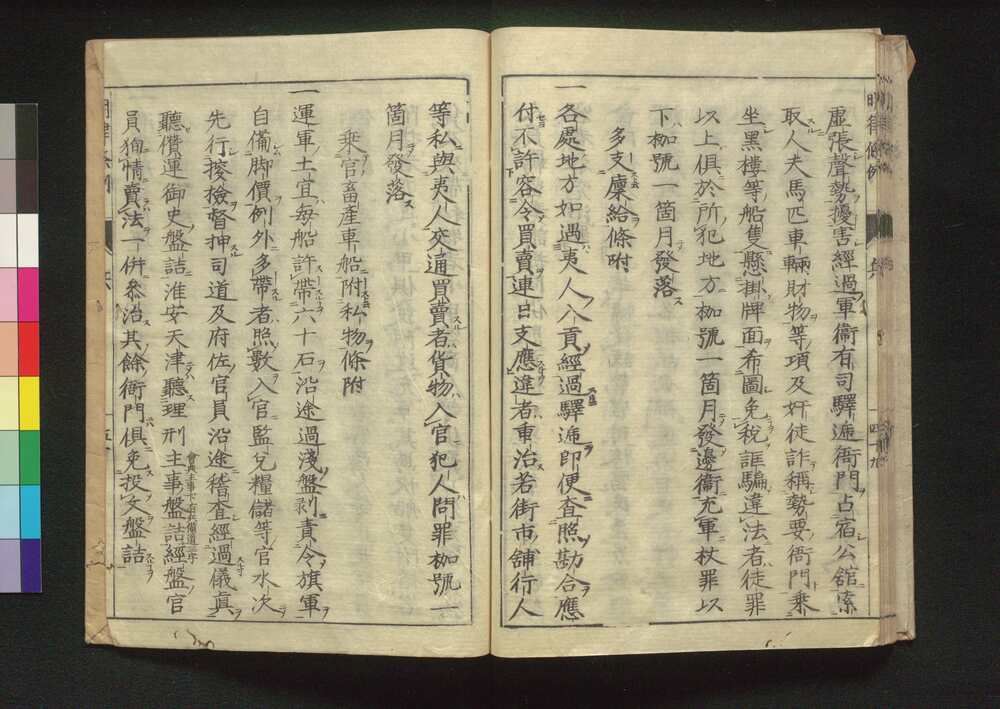 虛張聲勢擾害經過軍衞有司驛遞衙門占宿公舘索
取人夫馬匹車輛財物等項及奸徒詐稱勢要衙門乘
坐黑樓等船隻懸掛牌面希圖免稅誆騙違法者徒罪
以上俱於所犯地方枷號一箇月發邊衞充軍杖罪以
下枷號一箇月發落
多支廩給條附
一各處地方如遇夷人入貢經過驛遞即便查照勘合應
付不許容令買賣連日支應違者重治若街市舖行人
等私與夷人交通買賣者貨物入官犯人問罪枷號一
箇月發落
乘官畜產車船附私物條附
一運軍土宜每船許帶六十石沿途過淺盤剥責令旗軍
自備脚價例外多帶者照數入官監兌糧儲等官水次
先行搜檢督押司道及府佐官員沿途稽查經過儀真
聽儹運御史盤詰淮安天津聽理刑主事盤詰經盤官
員狥情賣法一併叅治其餘衙門俱免投文盤詰